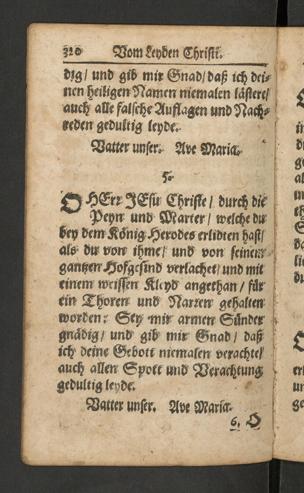 320 Vom Leyden Christi.
dig/ und gib mir Gnad/ daß ich dei-
nen heiligen Namen niemalen lästere/
auch alle falsche Auflagen und Nach-
reden gedultig leyde.
Vatter unser. Ave Maria.
5.
O HErr JEsu Christe/ durch die
Peyn und Marter/ welche du
bey dem König Herodes erlidten hast/
als du von ihme/ und von seinem
gantzen Hofgesind verlachet/ und mit
einem weissen Kleyd angethan/ für
ein Thoren und Narren gehalten
worden: Sey mir armen Sünder
gnädig/ und gib mir Gnad/ daß
ich deine Gebott niemalen verachte/
auch allen Spott und Verachtung
gedultig leyde.
Vatter unser. Ave Maria.
6. O